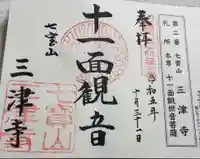 第二番 七宝山
札所本尊 十一面観世音菩薩
三津寺
奉拝
令和五年
十月三十一日
十一面観音
七宝山
三津寺
七宝山